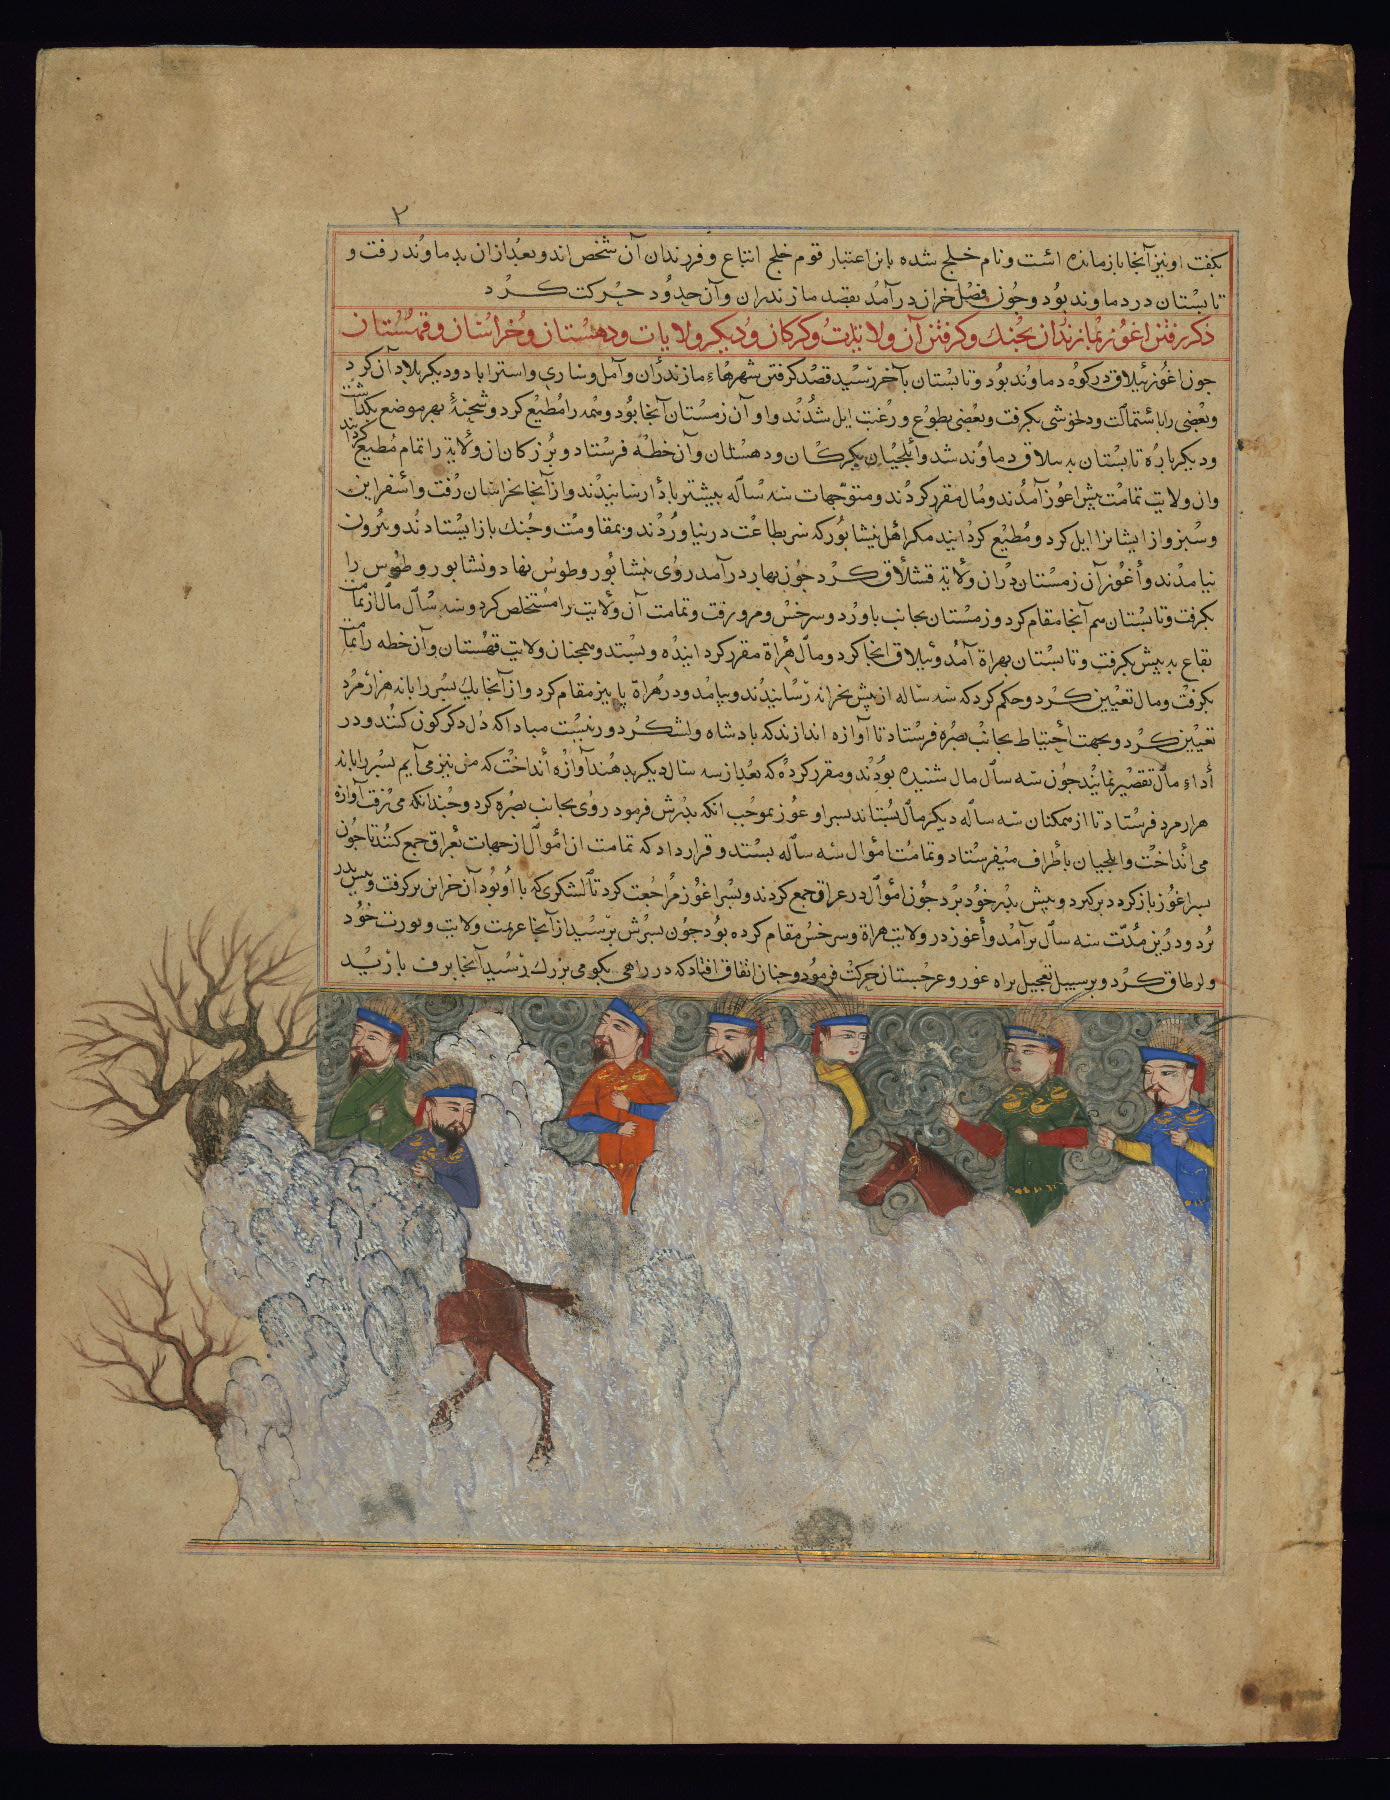 ۲
بگفت او نیز آنجا باز مانده است و نام خلج شده باین اعتبار قوم خلج اتباع و فرزندان آن شخص اند و بعد ازان بدماوند رفت و
تابستان در دماوند بود و چون فصل خزان درآمد بقصد مازندران و آن حدود حرکت کرد
ذکر رفتن اغوز بمازندران بجنک و کرفتن آن ولایت و کرکان و دیکر ولایات و دهستان و خراسان و قهستان
جون اغوز ییلاق در کوه دماوند بود و تابستان بآخر رسید قصد کرفتن شهرهاء مازندران و آمل و ساری و استراباد و دیکر بلاد آن کرد
و بعضی را باستمالت و دلخوشی بکرفت و بعضی بطوع و رغبت ایل شدند و او آن زمستان آنجا بود و همه را مطیع کرد و شحنۀ بهر موضع بکذاشت
و دیکرباره تابستان به ییلاق دماوند شد و ایلجیان بکرکان و دهستان و آن خطه فرستاد و بزرکان از ولایة را تمام مطیع کردند
و ان ولایت تمامت پیش اغوز آمدند و مال مقرر کردند و متوجهات سه ساله پیشتر بادا رسانیدند و از آنجا بخراسان رفت و اسفراین
و سبزوار ایشانرا ایل کرد و مطیع کردانید مکر اهل نیشابور که سر بطاعت در نیاوردند و بمقاومت و جنک باز ایستادند و بیرون
نیامدند و اغوز آن زمستان در ان ولایة قشلاق کرد جون بهار درآمد روی بنیشابور و طوس نهاد و نشابور و طوس را
بکرفت و تابستان هم آنجا مقام کرد و زمستان بجانب باورد و سرخس و مرو رفت و تمامت آن ولایت را مستخلص کرد و سه سال مال از تمامت
بقاع به پیش بکرفت و تابستان بهراة آمد و ییلاق آنجا کرد و مال هراة مقرر کردانیده و بستد و همجنان ولایت قهستان و آن خطه را تمامت
بکرفت و مال تعیین کرد و حکم کرد که سه ساله از پیش بخزانه رسانیدند و بیامد و در هراة پاییز مقام کرد و از آنجا یک پسر را با نه هزار مرد
تعیین کرد و بجهت احتیاط بجانب بصره فرستاد تا آوازه اندازند که بادشاه و لشکر دور نیست مبادا که دل دکرکون کنند و در
أداء مال تقصیر نمایند جون سه سال مال شنیده بودند و مقرر کرده که بعد از سه سال دیکر بدهند آوازه أنداخت که من نیز می آیم پسر را با نه
هزار مرد فرستاد تا از ممکنان سه ساله دیکر مال بستاند پسر اوغوز بموجب انکه پدرش فرمود روی بجانب بصره کرد و جندانکه می رفت آوازه
می أنداخت و ایلجیان بأطراف میفرستاد و تمامت أموال سه ساله بستد و قرار داد که تمامت ان أموال از جهات بعراق جمع کنند تا جون
پسر اغوز باز کردد برکیرد و پیش پدر خود برد جون اموال در عراق جمع کردند و پسر اغوز مراجعت کرد تا لشکری که با او بود آن خزاین برکرفت و پیش پدر
برد و درین مدت سه سال برآمد و أغوز در ولایت هراة و سرخس مقام کرده بود جون پسرش برسید از آنجا عزیمت ولایت و یورت خود
کرد و بر سبیل تعجیل براه غور و غرجستان حرکت فرمود و جنان اتفاق افتاد که در راهی بکوهی بزرک رسید آنجا برف بارید